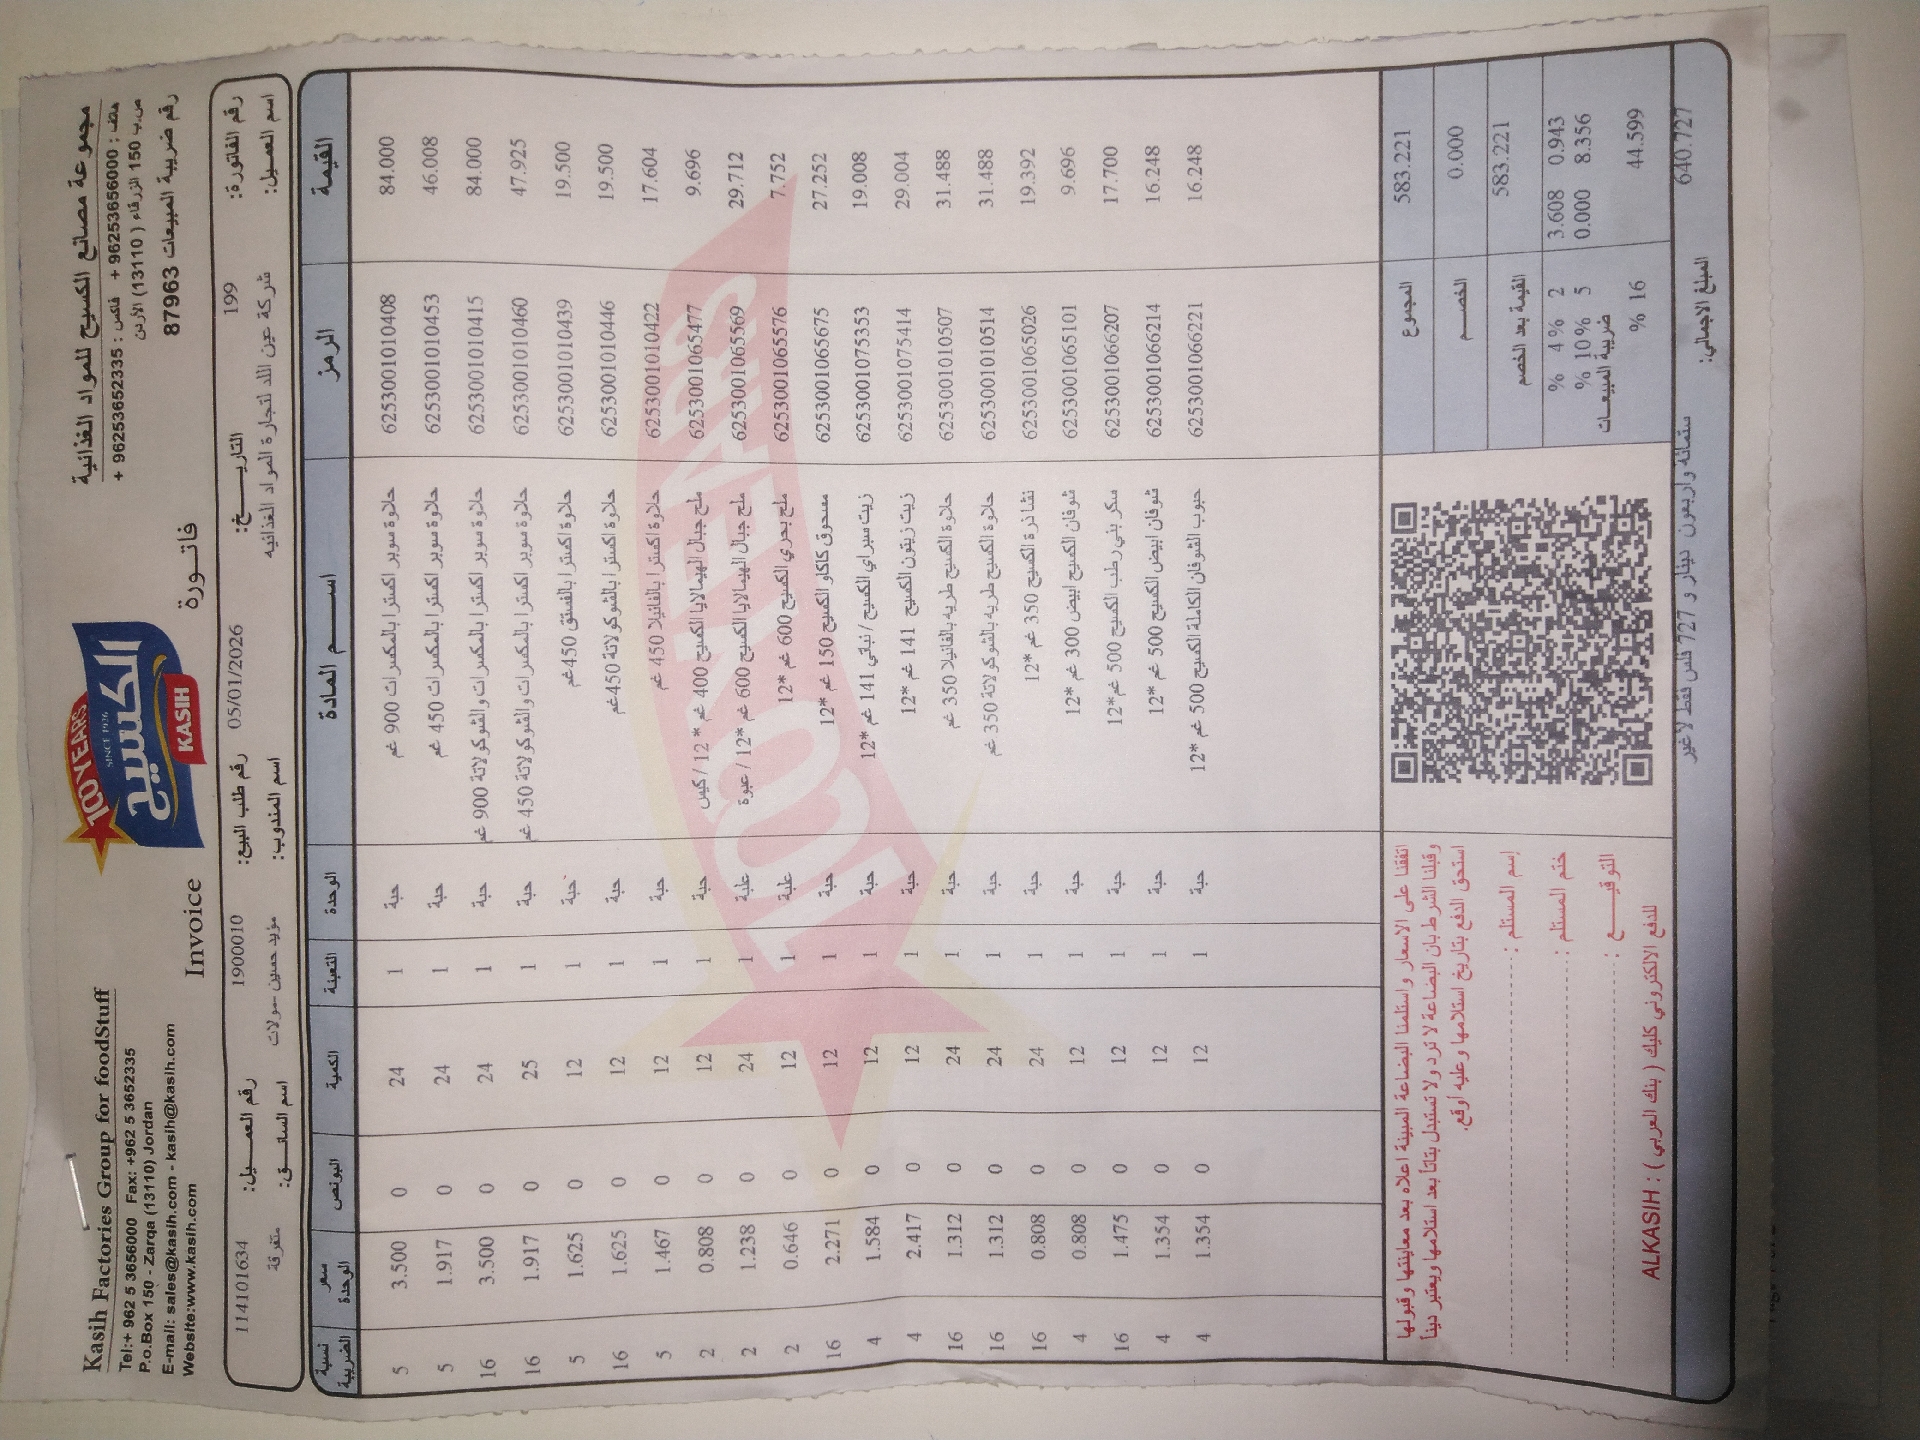 Kasih Factories Group for foodStuff
Tel:+ 962 5 3656000 Fax: +962 5 3652335
P.o.Box 150 - Zarqa (13110) Jordan
E-mail: sales@kasih.com - kasih@kasih.com
Website:www.kasih.com
100 YEARS
SINCE 1926
الكسيح
KASIH
مجموعة مصانع الكسيح للمواد الغذائية
هاتف : 96253656000 + فاكس : 96253652335 +
ص.ب 150 الزرقاء ( 13110) الأردن
رقم ضريبة المبيعات 87963
Invoice فاتـــورة
رقم الفاتورة: 199 التاريـــخ: 05/01/2026 رقم طلب البيع: 1900010 رقم العميـــل: 114101634
اسم العميل: شركة عين اللد لتجارة المواد الغذائيه اسم المندوب: مؤيد حسين -مولات اسم السائـــق: متفرقة
القيمة الرمز اســـم المـادة الوحدة التعبئة الكمية البونص سعر الوحدة نسبة الضريبة
84.000 6253001010408 حلاوة سوبر اكسترا بالمكسرات 900 غم حبة 1 24 0 3.500 5
46.008 6253001010453 حلاوة سوبر اكسترا بالمكسرات 450 غم حبة 1 24 0 1.917 5
84.000 6253001010415 حلاوة سوبر اكسترا بالمكسرات والشوكولاتة 900 غم حبة 1 24 0 3.500 16
47.925 6253001010460 حلاوة سوبر اكسترا بالمكسرات والشوكولاتة 450 غم حبة 1 25 0 1.917 16
19.500 6253001010439 حلاوة اكسترا بالفستق 450غم حبة 1 12 0 1.625 5
19.500 6253001010446 حلاوة اكسترا بالشوكولاتة 450غم حبة 1 12 0 1.625 16
17.604 6253001010422 حلاوة اكسترا بالفانيلا 450 غم حبة 1 12 0 1.467 5
9.696 6253001065477 ملح جبال الهيمالايا الكسيح 400 غم * 12 / كيس حبة 1 12 0 0.808 2
29.712 6253001065569 ملح جبال الهيمالايا الكسيح 600 غم *12 / عبوة علبة 1 24 0 1.238 2
7.752 6253001065576 ملح بحري الكسيح 600 غم *12 علبة 1 12 0 0.646 2
27.252 6253001065675 مسحوق كاكاو الكسيح 150 غم *12 حبة 1 12 0 2.271 16
19.008 6253001075353 زيت سبراي الكسيح / نباتي 141 غم *12 حبة 1 12 0 1.584 4
29.004 6253001075414 زيت زيتون الكسيح 141 غم *12 حبة 1 12 0 2.417 4
31.488 6253001010507 حلاوة الكسيح طريه بالفانيلا 350 غم حبة 1 24 0 1.312 16
31.488 6253001010514 حلاوة الكسيح طريه بالشوكولاتة 350 غم حبة 1 24 0 1.312 16
19.392 6253001065026 نشا ذرة الكسيح 350 غم *12 حبة 1 24 0 0.808 16
9.696 6253001065101 شوفان الكسيح ابيض 300 غم *12 حبة 1 12 0 0.808 4
17.700 6253001066207 سكر بني رطب الكسيح 500 غم *12 حبة 1 12 0 1.475 16
16.248 6253001066214 شوفان ابيض الكسيح 500 غم *12 حبة 1 12 0 1.354 4
16.248 6253001066221 حبوب الشوفان الكاملة الكسيح 500 غم *12 حبة 1 12 0 1.354 4
100 YEARS
المجموع 583.221
الخصـــم 0.000
القيمة بعد الخصم 583.221
% 4 % 2 3.608 0.943
% 10 % 5 0.000 8.356
ضريبة المبيعـــات
% 16 44.599
اتفقنا على الاسعار واستلمنا البضاعة المبينة اعلاه بعد معاينتها وقبولها
وقبلنا الشرط بان البضاعة لا ترد ولا تستبدل بتاتاً بعد استلامها ويعتبر ديناً
استحق الدفع بتاريخ استلامها وعليه أوقع.
إسم المستلم :
ختم المستلم :
التوقيـــــع :
للدفع الالكتروني كليك ( بنك العربي ) : ALKASIH
المبلغ الاجمالي: 640.727 ستمائة واربعون دينار و 727 فلس فقط لا غير